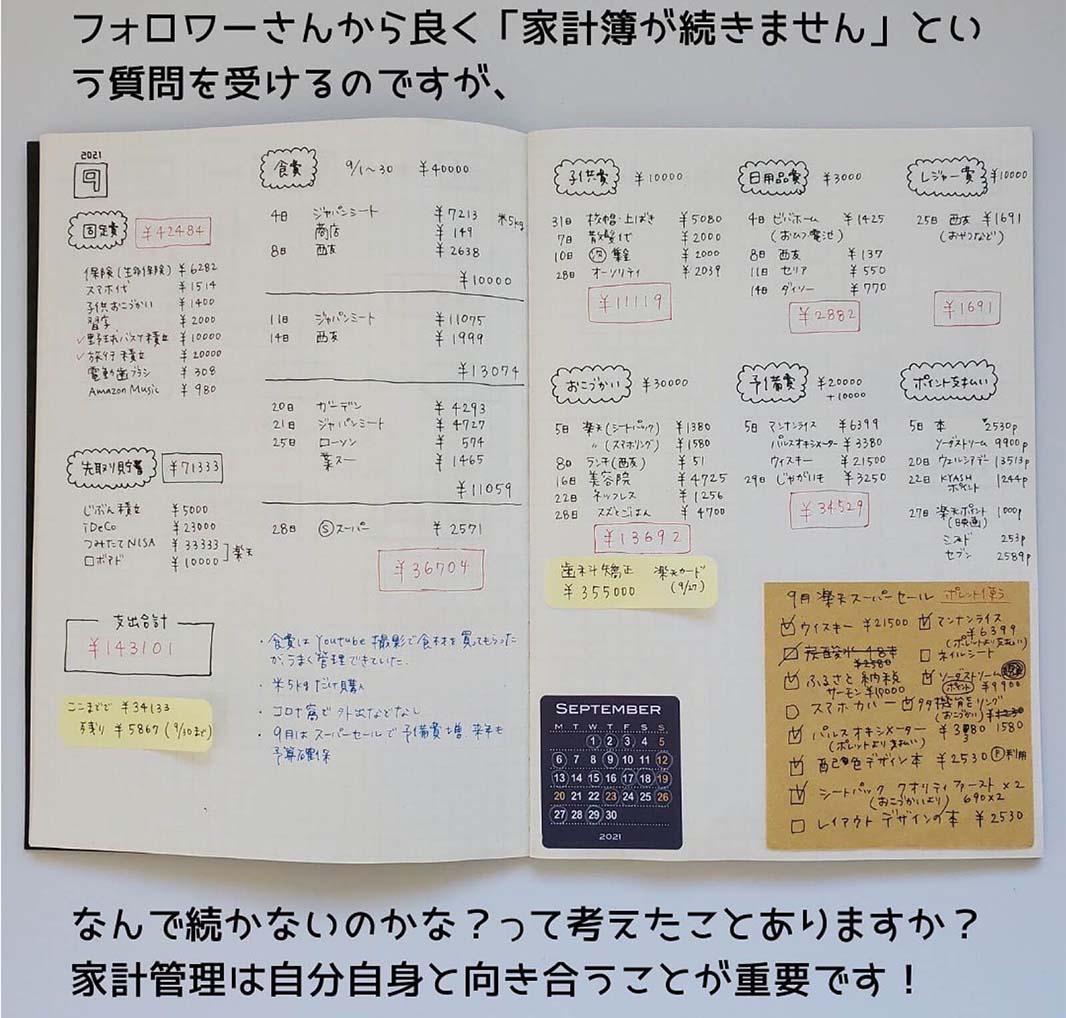 フォロワーさんから良く「家計簿が続きません」とい
う質問を受けるのですが、
2021
9
固定費 ¥42484
保険(生命保険) ¥6282
スマホ代 ¥1514
子供おこづかい ¥1400
習字 ¥2000
✓野球バスケ積立 ¥10000
✓旅行積立 ¥20000
電動歯ブラシ ¥308
Amazon Music ¥980
先取り貯蓄 ¥71333
じぶん積立 ¥5000
iDeCo ¥23000
つみたてNISA ¥33333
ロボアド ¥10000
楽天
支出合計
¥143101
ここまでで ¥34133
残り ¥5867 (9/30まで)
食費 9/1~30 ¥40000
4日 ジャパンミート ¥7213 米5kg
商店 ¥149
8日 西友 ¥2638
¥10000
11日 ジャパンミート ¥11075
14日 西友 ¥1999
¥13074
20日 ガーデン ¥4293
21日 ジャパンミート ¥4727
25日 ローソン ¥574
業スー ¥1465
¥11059
28日 Ⓢスーパー ¥2571
¥36704
・食費はYoutube撮影で食材を買ってもらった
がうまく管理できていた.
・米5kgだけ購入
・コロナ禍で外出などなし
・9月はスーパーセールで予備費増. 来年も
予算確保
子供費 ¥10000
31日 校帽・上ばき ¥5080
7日 散髪代 ¥2000
10日 集金 ¥2000
28日 オーソリティ ¥2039
¥11119
日用品費 ¥3000
4日 ビバホーム ¥1425
(おひつ電池)
8日 西友 ¥137
11日 セリア ¥550
14日 ダイソー ¥770
¥2882
レジャー費 ¥10000
25日 西友 ¥1691
(おやつなど)
¥1691
おこづかい ¥30000
5日 楽天(シートパック) ¥1380
〃 (スマホリング) ¥1580
8日 ランチ(西友) ¥51
16日 美容院 ¥4725
22日 ネップレス ¥1256
28日 スズとごはん ¥4700
¥13692
歯科矯正 楽天カード
¥355000 (9/27)
予備費 ¥20000
+10000
5日 マンナンライス ¥6399
パルスオキシメーター ¥3380
ウィスキー ¥21500
29日 じゃがいも ¥3250
¥34529
ポイント支払い
5日 本 2530p
ソーダストリーム 9900p
20日 ウェルシアデー 13513p
22日 KYASH 1244p
ポイント
27日 楽天ポイント 1000p
(映画)
253p
セブン 2589p
SEPTEMBER
M T W T F S S
1 2 3 4 5
6 7 8 9 10 11 12
13 14 15 16 17 18 19
20 21 22 23 24 25 26
27 28 29 30
2021
9月 楽天スーパーセール ポレット使う
ウイスキー ¥21500
マンナンライス
¥6399
(ポレットより支払い)
炭酸水 48本
¥2580
ネイルシート
ふるさと納税
サーモン ¥10000
ソーダストリーム
ポイント ¥9900
スマホカバー
機能リング
(おこづかい) 1580
パルスオキシメーター
(ポレットより支払い)
配色デザイン本 ¥2530 Ⓟ利用
シートパック クオリティファースト×2
(おこづかいより) 690×2
レイアウトデザインの本 ¥2530
なんで続かないのかな?って考えたことありますか?
家計管理は自分自身と向き合うことが重要です!